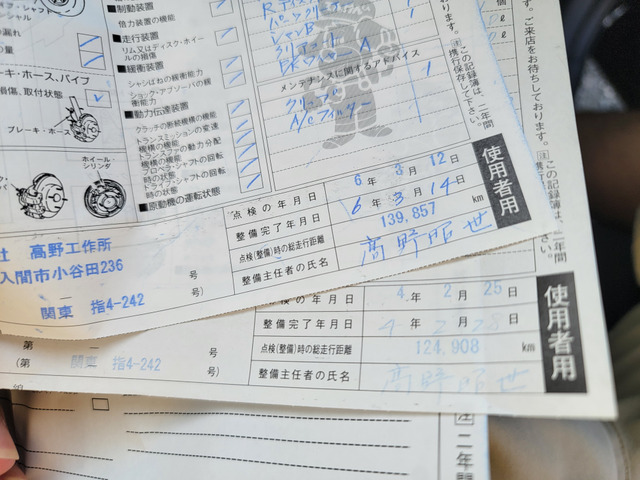 ■制動装置
倍力装置の機能
■走行装置
リム又はディスク・ホイールの損傷
■緩衝装置
シャシばねの緩衝能力
ショック・アブソーバの緩衝能力
■動力伝達装置
クラッチの断続機構の機能
トランスミッションの変速機構の機能
トランスファの動力分配機構の機能
プロペラ・シャフトの回転時の状態
ドライブ・シャフトの回転時の状態
■原動機の運転状態
漏れ
の量
ブレーキ・ホース、パイプ
損傷、取付状態
ブレーキ・ホース
ホイール・シリンダ
メンテナンスに関するアドバイス
A/Cフィルター
おります。
注 この記録簿は、二年間携行保存して下さい。
使用者用
点検の年月日
6年3月12日
整備完了年月日
6年3月14日
点検(整備)時の総走行距離
139,857 km
整備主任者の氏名
高野昭世
社 高野工作所
入間市小谷田236
号
関東 指4-242
号)
点検の年月日
4年2月25日
整備完了年月日
4年2月28日
点検(整備)時の総走行距離
124,908 km
整備主任者の氏名
高野昭世
第 一
号
(第 関東 指4-242
号)
使用者用
ご来店をお待ちしております。
注 この記録簿は、二年間
注 二年間